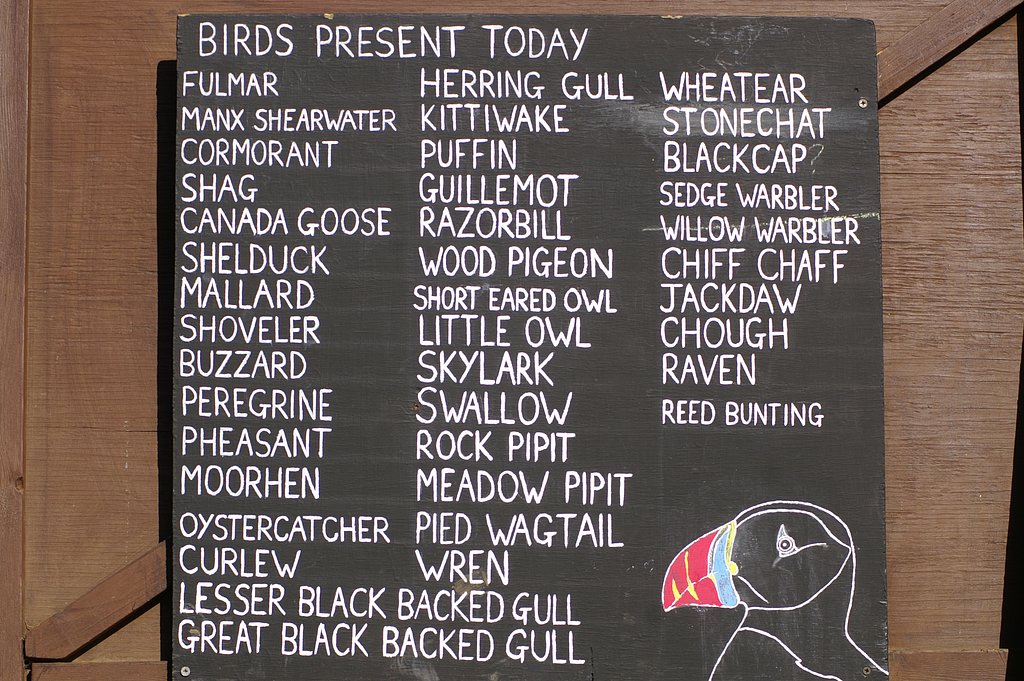 BIRDS PRESENT TODAY
FULMAR
MANX SHEARWATER
CORMORANT
SHAG
CANADA GOOSE
SHELDUCK
MALLARD
SHOVELER
BUZZARD
PEREGRINE
PHEASANT
MOORHEN
OYSTERCATCHER
CURLEW
LESSER BLACK BACKED GULL
GREAT BLACK BACKED GULL
HERRING GULL
KITTIWAKE
PUFFIN
GUILLEMOT
RAZORBILL
WOOD PIGEON
SHORT EARED OWL
LITTLE OWL
SKYLARK
SWALLOW
ROCK PIPIT
MEADOW PIPIT
PIED WAGTAIL
WREN
WHEATEAR
STONECHAT
BLACKCAP?
SEDGE WARBLER
WILLOW WARBLER
CHIFF CHAFF
JACKDAW
CHOUGH
RAVEN
REED BUNTING